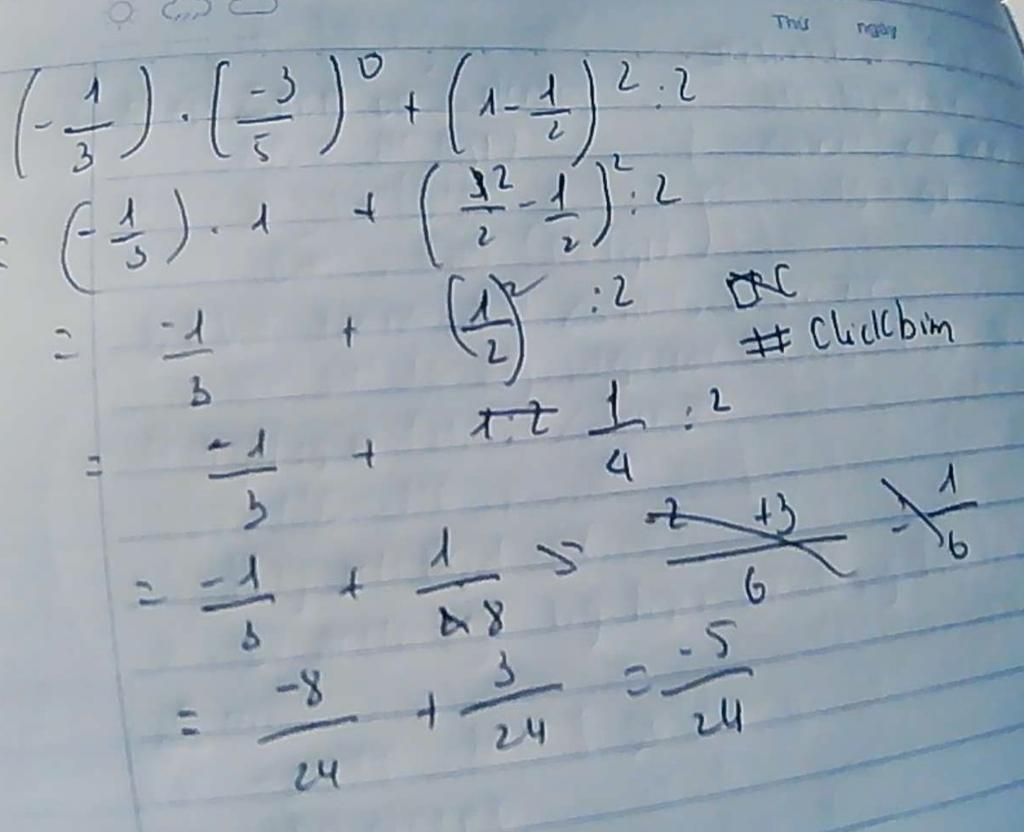 Thứ ngày
(-1/3) . (-3/5)^0 + (1 - 1/2)^2 : 2
= (-1/3) . 1 + (2/2 - 1/2)^2 : 2
= -1/3 + (1/2)^2 : 2
# ClickCbim
= -1/3 + 1/4 : 2
= -1/3 + 1/8
= -8/24 + 3/24 = -5/24